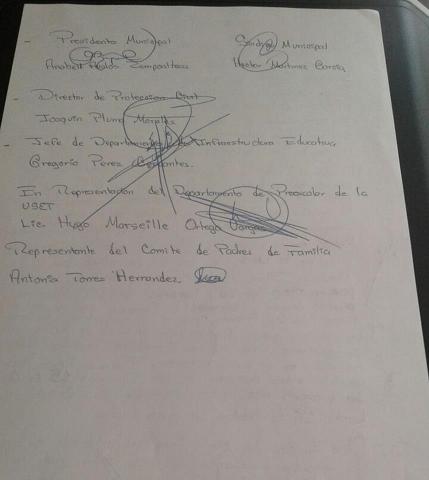 - Presidenta Municipal
Síndico Municipal
Anabell Zempoalteca
Hector Martinez García
- Director de Protección Civil
Joaquin Pluma Morales
- Jefe de Departamento de Infraestructura Educativa
Gregorio Perez Cervantes.
En Representación del Departamento de Preescolar de la
USET
Lic. Hugo Marseille Ortega Vargas
Representante del Comite de Padres de Familia
Antonia Torres Hernandez